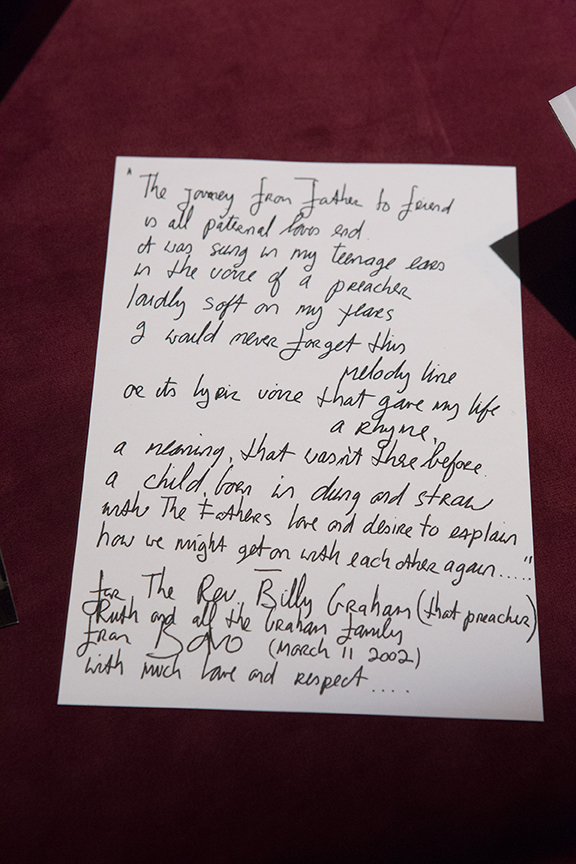 "The journey from Father to friend
is all paternal loves end
it was sung in my teenage ears
in the voice of a preacher
loudly soft on my tears
I would never forget this
melody line
or its lyric voice that gave my life
a Rhyme,
a meaning, that wasn't there before.
a child, born in dung and straw
with The Fathers love and desire to explain
how we might get on with each other again....."
for The Rev. Billy Graham (that preacher)
Ruth and all the Graham family
from BONO (MARCH 11 2002)
with much love and respect....